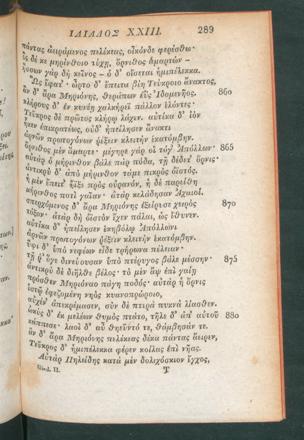 ΙΛΙΑΔΟΣ XXIII. 289
πάντας ἀειράμενος πελέκεας, οἶκόνδε φερέσθω·
ὃς δέ κε μηρίνθοιο τύχῃ, ὄρνιθος ἁμαρτὼν —
ἥσσων γὰρ δὴ κεῖνος — ὁ δ' οἴσεται ἡμιπέλεκκα.
Ὣς ἔφατ'· ὦρτο δ' ἔπειτα βίη Τεύκροιο ἄνακτος,
ἂν δ' ἄρα Μηριόνης, θεράπων ἐῢς Ἰδομενῆος. 860
κλήρους δ' ἐν κυνέῃ χαλκήρεϊ πάλλον ἑλόντες·
Τεῦκρος δὲ πρῶτος κλήρῳ λάχεν. αὐτίκα δ' ἰὸν
ἧκεν ἐπικρατέως, οὐδ' ἠπείλησεν ἄνακτι
ἀρνῶν πρωτογόνων ῥέξειν κλειτὴν ἑκατόμβην.
ὄρνιθος μὲν ἅμαρτε· μέγηρε γάρ οἱ τόγ' Ἀπόλλων· 865
αὐτὰρ ὁ μήρινθον βάλε πὰρ πόδα, τῇ δέδετ' ὄρνις·
ἀντικρὺ δ' ἀπὸ μήρινθον τάμε πικρὸς ὀϊστός.
ἡ μὲν ἔπειτ' ἤϊξε πρὸς οὐρανὸν, ἡ δὲ παρείθη
μήρινθος ποτὶ γαῖαν· ἀτὰρ κελάδησαν Ἀχαιοί.
σπερχόμενος δ' ἄρα Μηριόνης ἐξείρυσε χειρὸς 870
τόξον· ἀτὰρ δὴ ὀϊστὸν ἔχεν πάλαι, ὡς ἴθυνεν.
αὐτίκα δ' ἠπείλησεν ἑκηβόλῳ Ἀπόλλωνι
ἀρνῶν πρωτογόνων ῥέξειν κλειτὴν ἑκατόμβην.
ὕψι δ' ὑπὸ νεφέων εἶδε τρήρωνα πέλειαν·
τῇ ῥ' ὅγε δινεύουσαν ὑπὸ πτέρυγος βάλε μέσσην· 875
ἀντικρὺ δὲ διῆλθε βέλος· τὸ μὲν ἂψ ἐπὶ γαίῃ
πρόσθεν Μηριόναο πάγη ποδός· αὐτὰρ ἡ ὄρνις
ἱστῷ ἐφεζομένη νηὸς κυανοπρώροιο,
αὐχέν' ἀπεκρέμασεν, σὺν δὲ πτερὰ πυκνὰ λίασθεν.
ὠκὺς δ' ἐκ μελέων θυμὸς πτάτο, τῆλε δ' ἀπ' αὐτοῦ 880
κάππεσε· λαοὶ δ' αὖ θηεῦντό τε, θάμβησάν τε.
ἂν δ' ἄρα Μηριόνης πελέκεας δέκα πάντας ἄειρεν,
Τεῦκρος δ' ἡμιπέλεκκα φέρεν κοίλας ἐπὶ νῆας.
Αὐτὰρ Πηλείδης κατὰ μὲν δολιχόσκιον ἔγχος,
T